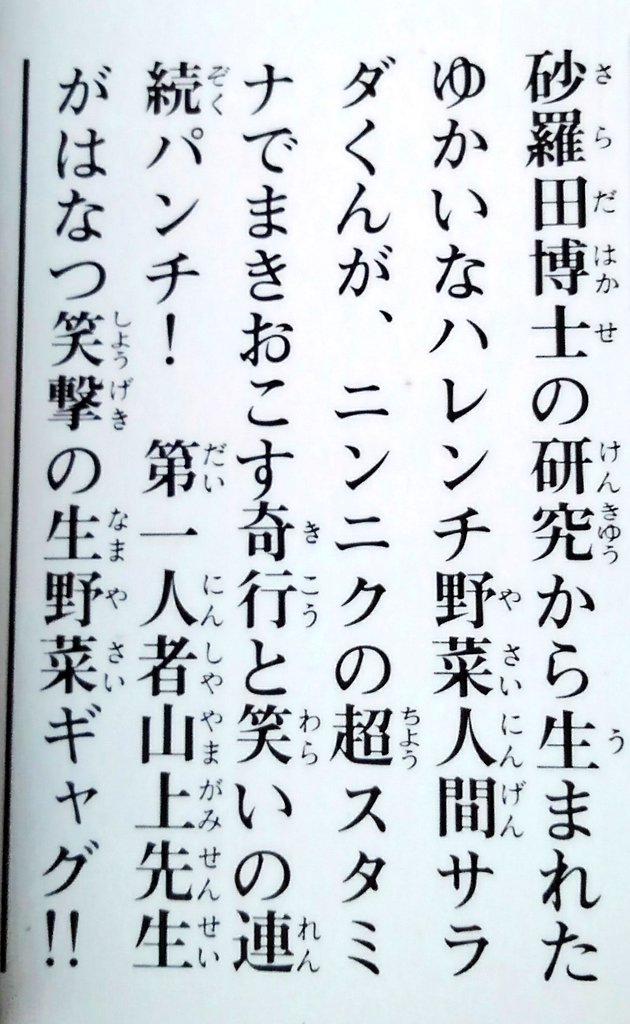 砂羅田博士の研究から生まれた
ゆかいなハレンチ野菜人間サラ
ダくんが、ニンニクの超スタミ
ナでまきおこす奇行と笑いの連
続パンチ！　第一人者山上先生
がはなつ笑撃の生野菜ギャグ!!